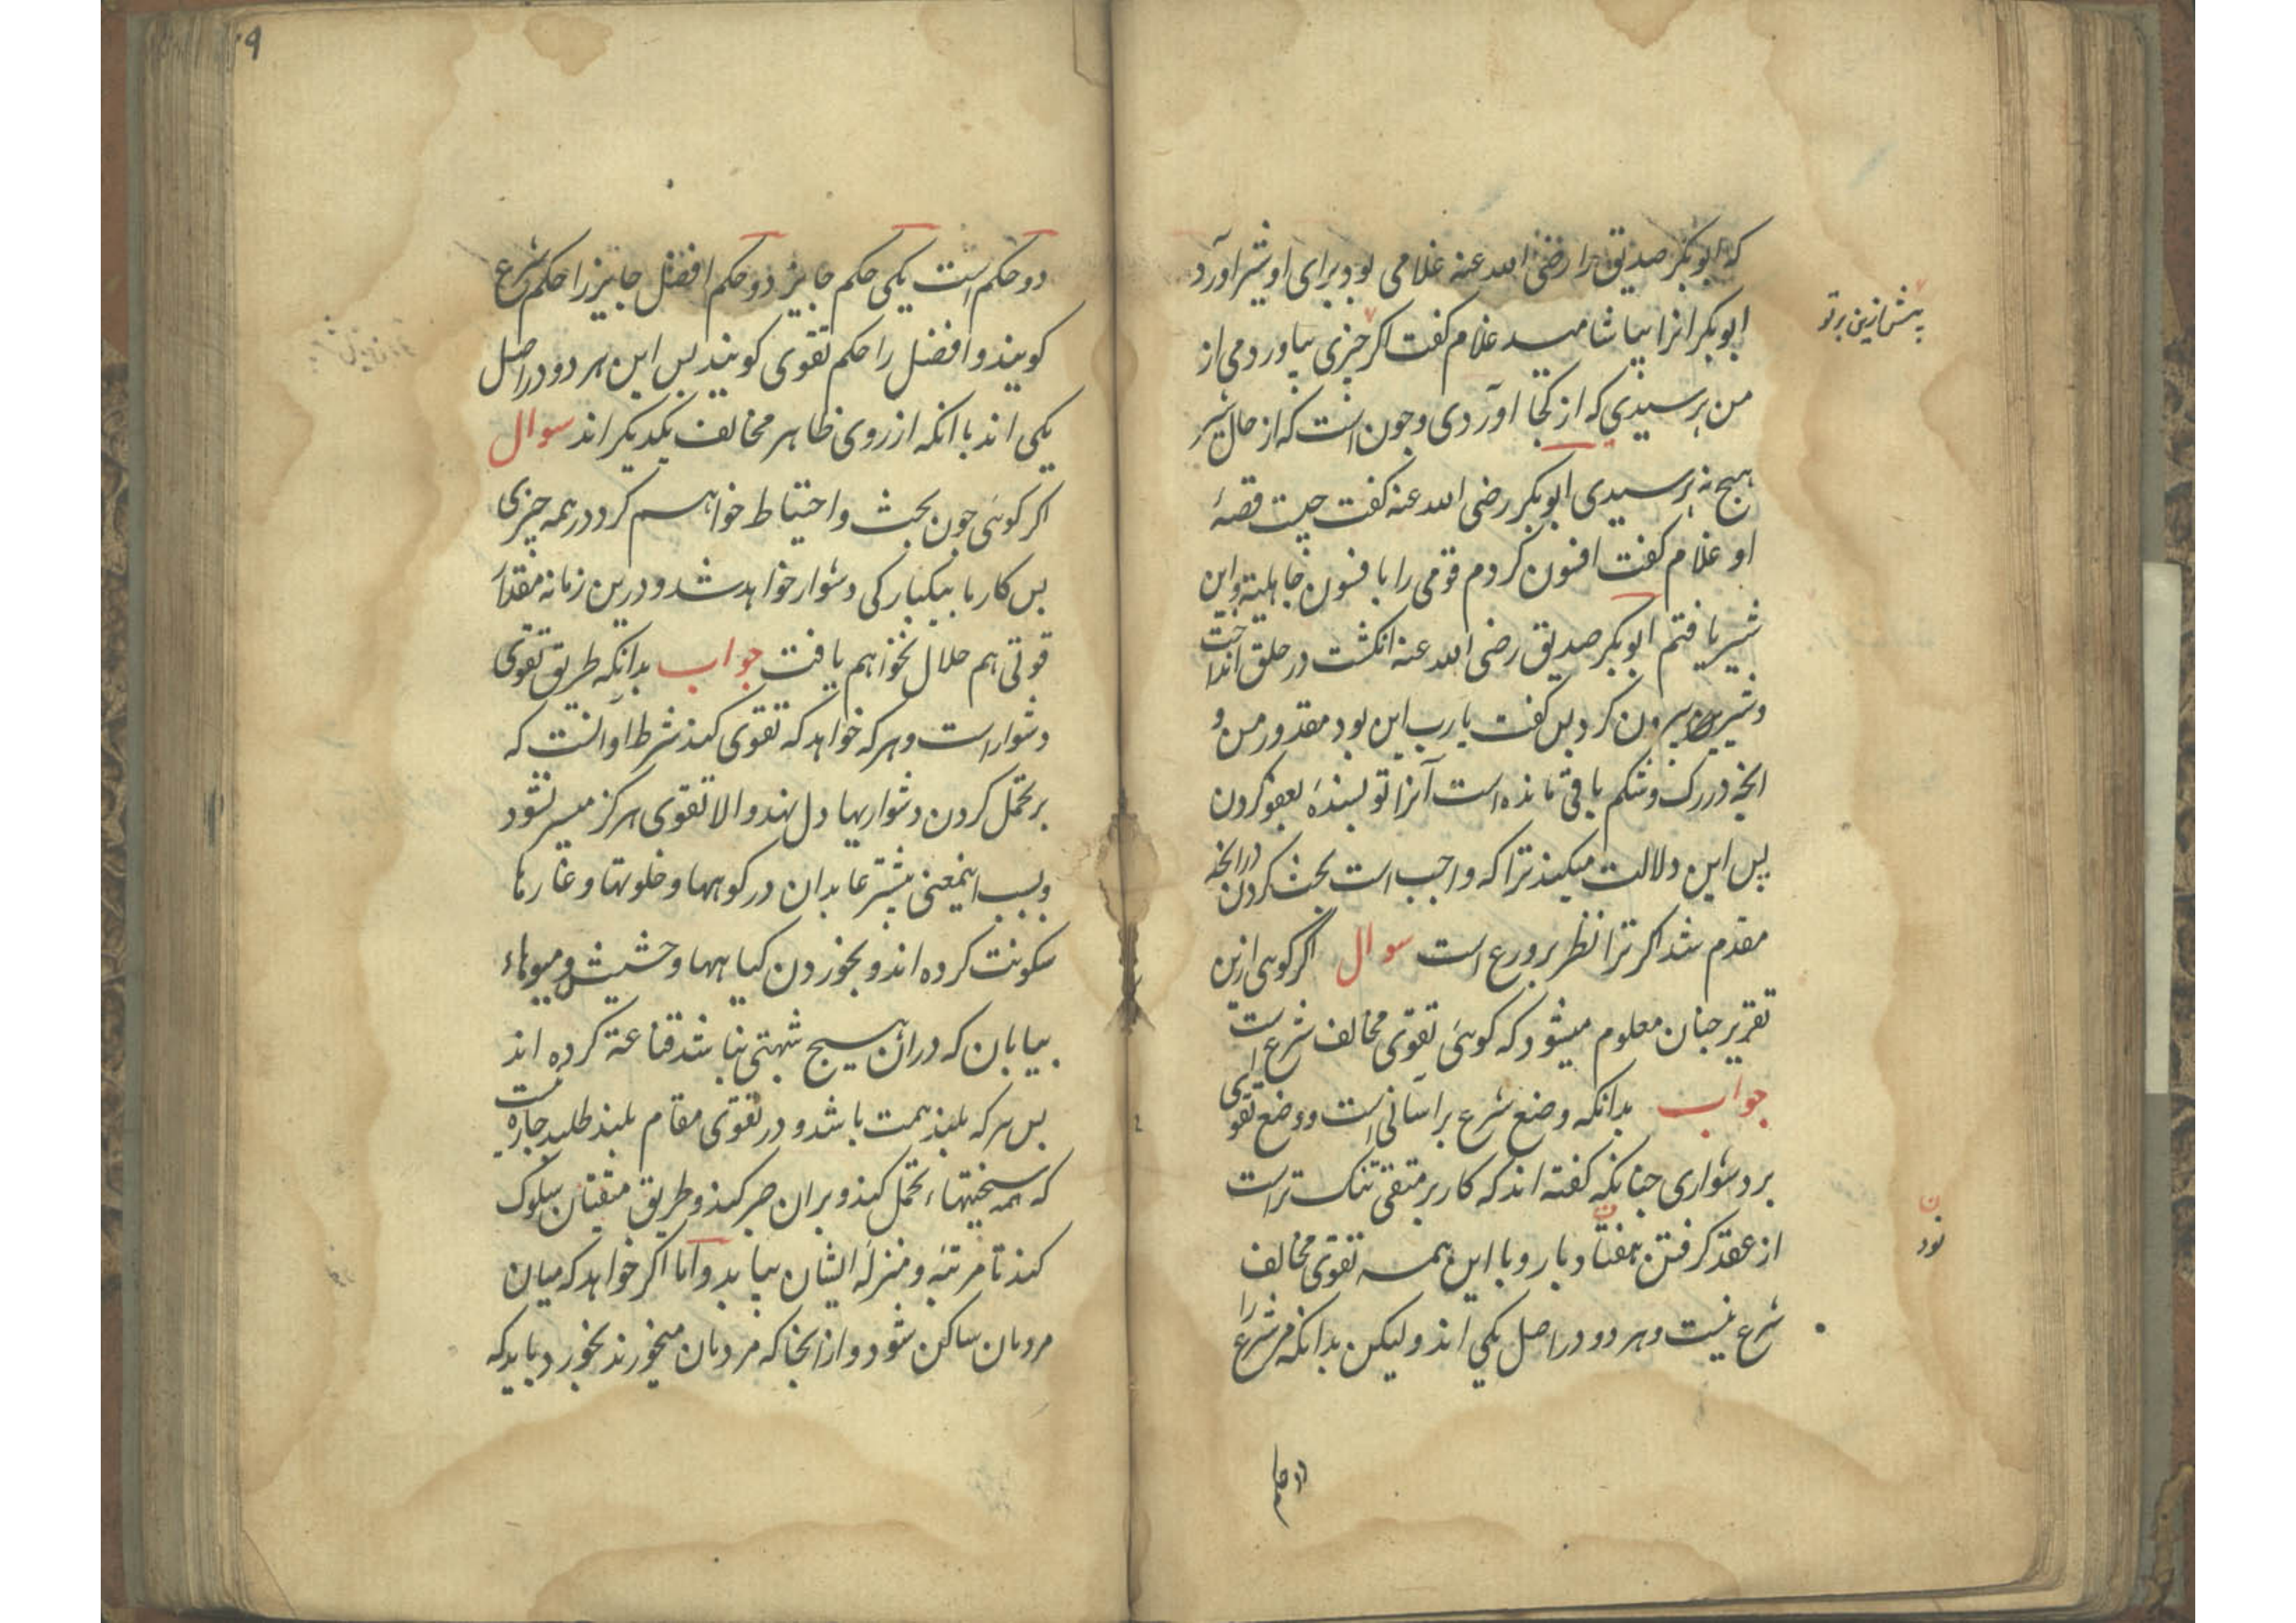 که ابوبکر صدیق را رضی الله عنه غلامی بود برای او شیر آورد
ابوبکر انرا بیاشامید غلام کفت اکر چیزی بیاوردمی از
پیش ازین بر تو
من پرسیدی که از کجا آوردی و چون است که از حال شیر
هیچ نه پرسیدی ابوبکر رضی الله عنه کفت چیست قصهٔ
او غلام کفت افسون کردم قومی را بافسون جاهلیة و این
شیر یافتم ابوبکر صدیق رضی الله عنه انکشت در حلق انداخت
و شیر بیرون کرد پس کفت یا رب این بود مقدور من و
انچه در رک و شکم باقی مانده است آنرا تو بسندهٔ بعفو کردن
پس این دلالت میکند ترا که واجب است بحث کردن درانچه
مقدم شد اکر ترا نظر بر ورع است سوال اکر کوئی ازین
تقریر چنان معلوم میشود که کوئی تقوی مخالف شرع است
جواب بدانکه وضع شرع بر آسانی است و وضع تقوی
بر دشواری چنانکه کفته اند که کار بر متقی تنک تر است
از عقد کرفتن هفتاد بار و با این همه تقوی مخالف
نود
شرع نیست و هر دو در اصل یکی اند و لیکن بدانکه مر شرع را
دو حکم
۹
دو حکم است یکی حکم جایز دو حکم افضل جایز را حکم شرع
کویند و افضل را حکم تقوی کویند پس این هر دو در اصل
یکی اند با انکه از روی ظاهر مخالف یکدیکر اند سوال
اکر کوئی چون بحث و احتیاط خواهم کرد در همه چیزی
پس کار ما بیکبارکی دشوار خواهد شد و درین زمانه مقدار
قوتی هم حلال نخواهم یافت جواب بدانکه طریق تقوی
دشوار است و هر که خواهد که تقوی کند شرط او انست که
بر تحمل کردن دشواریها دل نهد و الا تقوی هرکز میسر نشود
و بسبب اینمعنی بیشتر عابدان در کوهها و خلوتها و غارها
سکونت کرده اند و بخوردن کیاهها و حشیش و میوهاء
بیابان که دران هیچ شبهتی نباشد قناعة کرده اند
پس هر که بلند همت باشد و در تقوی مقام بلند طلبد چاره نیست
که همه سختیهاء تحمل کند و بران صبر کند و طریق متقیان سلوک
کند تا مرتبهٔ و منزلهٔ ایشان بیابد و اما اکر خواهد که میان
مردمان ساکن شود و از انجا که مردمان میخورند بخورد باید که